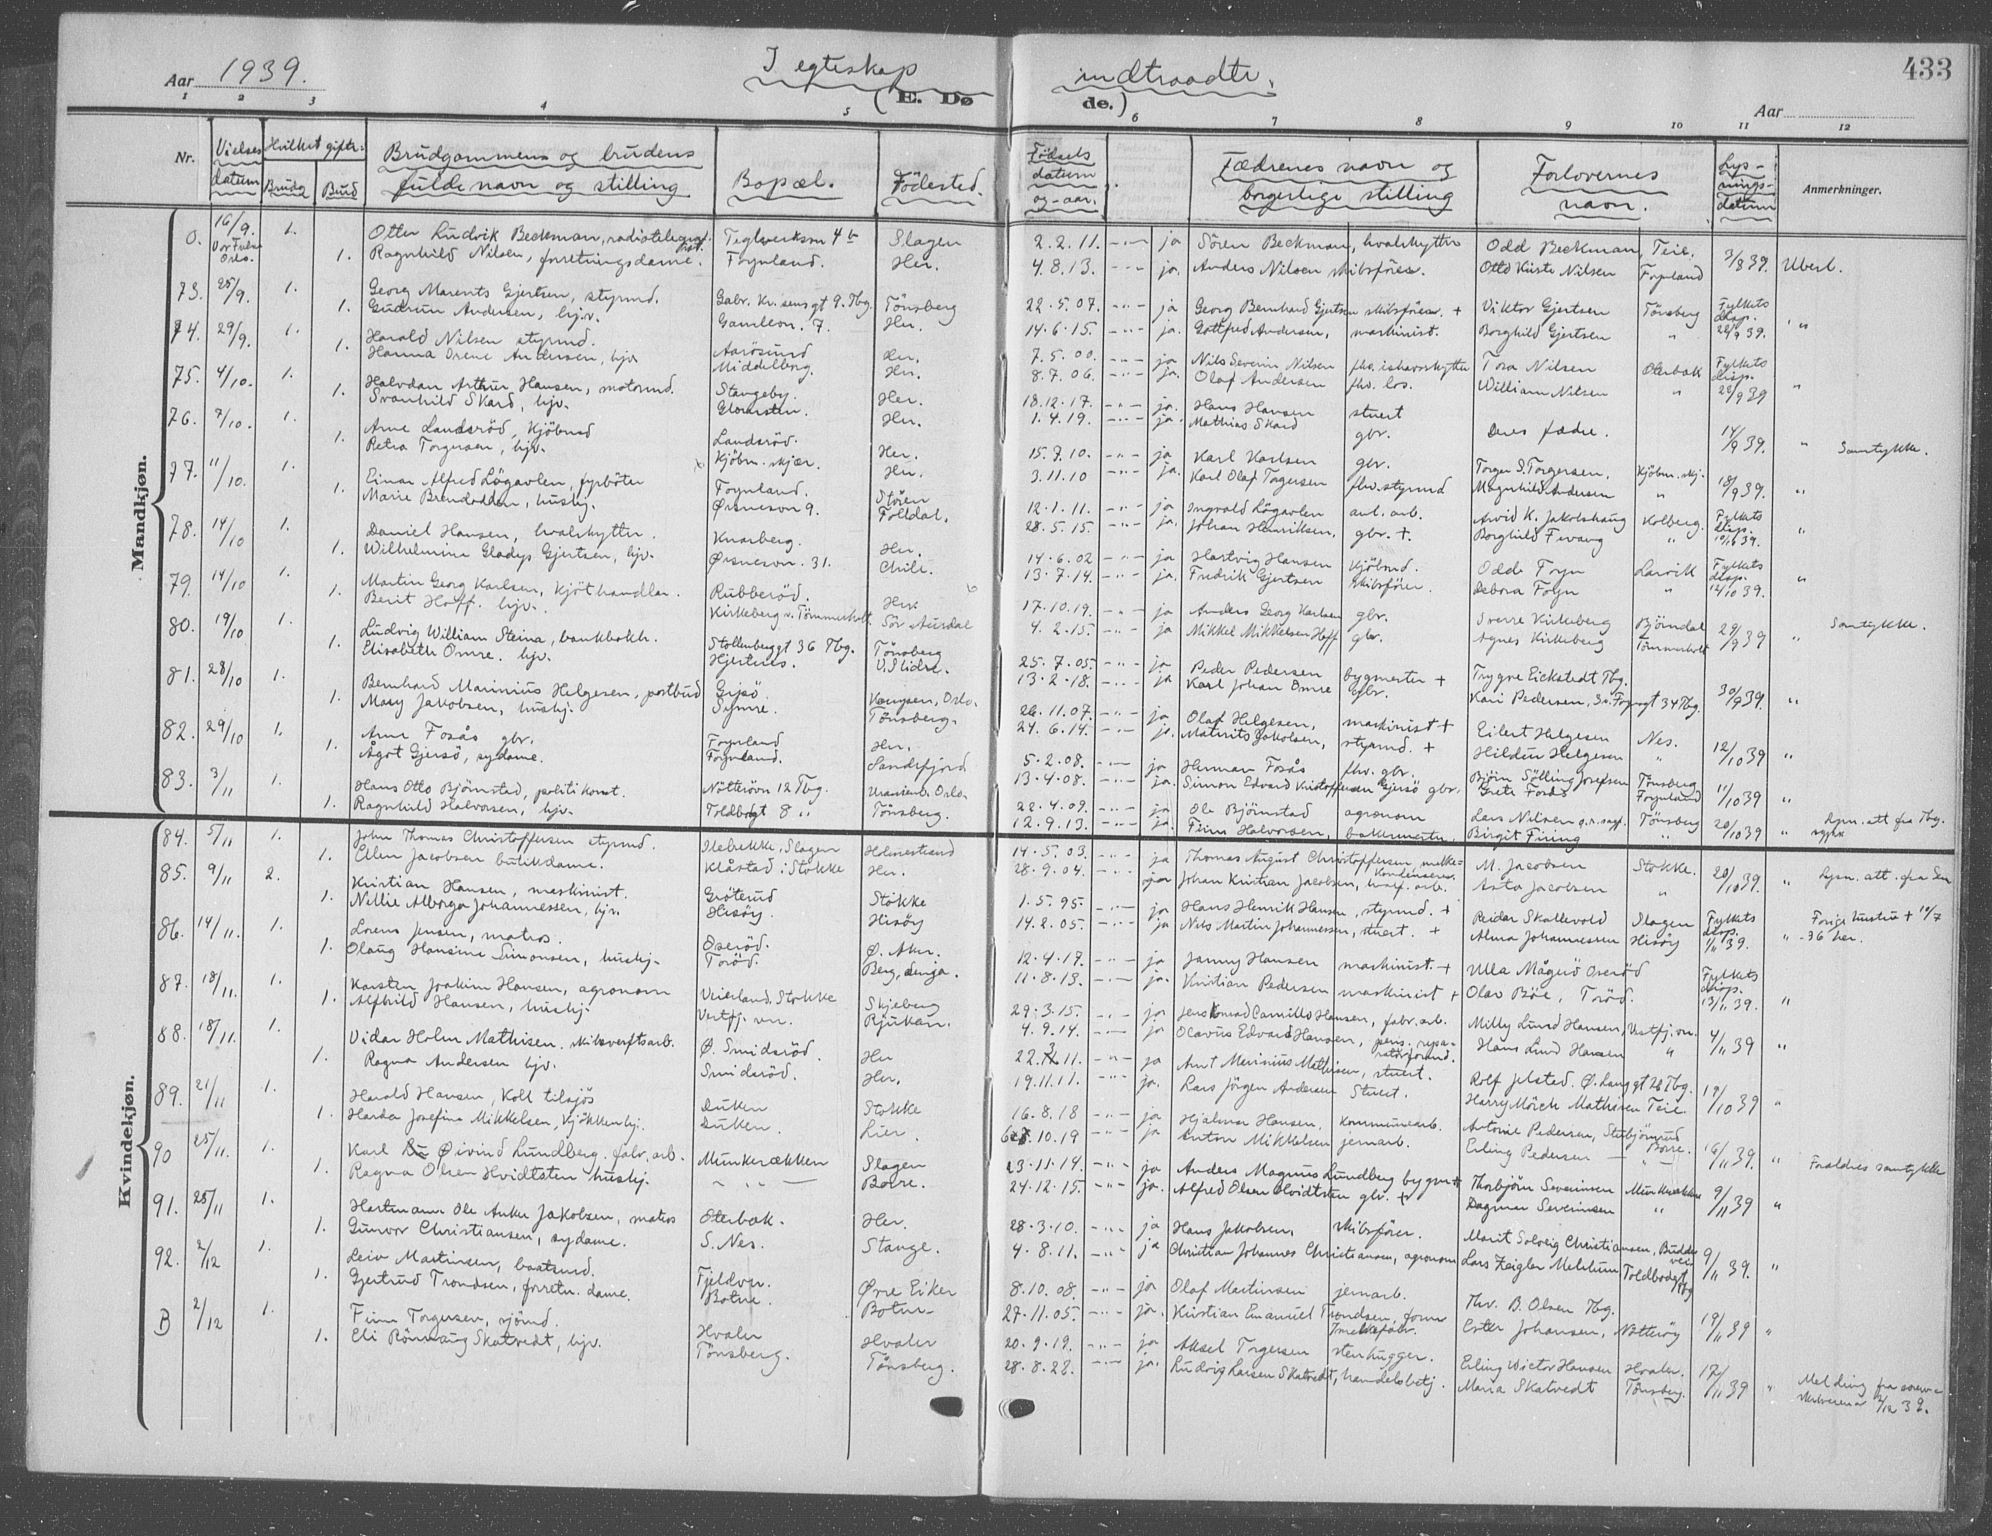 Aar 1939. I egteskap indtraadte. 433
(E. Dø de.) Aar
1 2 3 4 5 6 7 8 9 10 11 12
Nr. Vielses datum Hvilket gifte: Brudg Brud Brudgommens og brudens fulde navn og stilling Bopæl. Fødested. Fødsels datum og -aar. Fædrenes navn og borgerlige stilling Forlovernes navn. Lysningsdatum Anmerkninger.
Mandkjøn.
Kvindekjøn.
0. 16/9. 1. Otto Ludvik Beckman, radiotelegraf. Teglverksvn 4 b Slagen 2.2.11. ja Sören Beckman, hvalskytter Odd Beckman, Teie. 3/8 39. Uberl.
Vor Frelse Oslo. 1. Ragnhild Nilsen, forretningsdame. Föynland. Her. 4.8.13. ja. Anders Nilsen skibsförer. Otto Nilsen Föynland
73. 25/9. 1. Georg Marents Gjertsen, styrmd. Gabr. Kr.sensgt 9. Tbg. Tönsberg 22.5.07. ja Georg Bernhard Gjertsen skibsförer + Viktor Gjertsen Tönsberg Fylkets disp. 20/9 39. "
1. Gudrun Andersen, hjv. Gamleon. 7. Her. 14.6.15. ja. Gottfred Andersen, maskinist. Borghild Gjertsen "
74. 29/9. 1. Harald Nilsen styrmd. Aarösund Her. 7.5.00. ja Nils Severin Nilsen fhv. ishavsskytter Tora Nilsen Oterbæk Fylkets disp. 28/9 39 "
1. Hanna Orene Andersen, hjv. Middelborg. Her. 8.7.06. ja. Olaf Andersen fhv. los. William Nilsen "
75. 4/10. 1. Halvdan Arthur Hansen, motormd. Stangeby. Her. 18.12.17. ja. Hans Hansen stuert Deres fædre. 14/9 39. " Samtykke.
1. Svanhild Skard, hjv. Glomsten. Her. 1.4.19. ja. Mathias Skard gbr.
76. 7/10. 1. Arne Landsröd, Kjöbmd Landsröd. Her. 15.7.10. ja Karl Karlsen gbr. Torger S. Torgersen, Kjöbm.skj. 18/9 39. "
1. Petra Torgersen, hjv. Kjöbm.skjær. Her. 3.11.10 ja. Karl Olaf Torgersen fhv. styrmd Magnhild Andersen "
77. 11/10. 1. Einar Alfred Lögavlen, fyrböter Föynland. Stören 12.1.11. ja Ingvald Lögavlen anl. arb. Arvid K. Jakobshaug Kolberg. Fylkets disp. 10/10 39. "
1. Marie Brendodden, hushj. Ørsnesvn 9. Folldal. 28.5.15. ja. Johan Henriksen, gbr. +. Borghild Fevang "
78. 14/10 1. Daniel Hansen, hvalskytter. Knarberg. Her. 14.6.02 ja Hartvig Hansen Kjöbmd. Odd Föyn Larvik Fylkets disp. 12/10 39. "
1. Wilhelmine Gladys Gjertsen, hjv. Ørsnesvn. 31. Chile. 13.7.14. ja. Fredrik Gjertsen skibsförer Debora Foyn "
79. 14/10 1. Martin Georg Karlsen, Kjöthandler. Rubberöd. Her. 17.10.19. ja Anders Georg Karlsen gbr. Sverre Kirkeberg Bjöndal 29/9 39 " Samtykke.
1. Berit Hoff. hjv. Kirkeberg v. Tömmerholt Sör Aurdal 4.2.15. ja Mikkel Mikkelsen Hoff gbr. Agnes Kirkeberg Tömmerholt
80. 19/10 1. Ludvig William Steina, bankbokh. Stoltenberggt 36 Tbg. Tönsberg 25.7.05. ja Peder Pedersen bygmester + Trygve Eickstedt Tbg. 30/9 39. "
1. Elisabeth Omre. hjv. Hjertnes. V. Slidre. 13.2.18. ja Karl Johan Omre gbr. Kari Pedersen, Sv. Föyngt 34 Tbg.
81. 28/10 1. Bernhard Marinius Helgesen, postbud Gipsö. Kampen, Oslo. 26.11.07. ja Olaf Helgesen, maskinist + Eilert Helgesen Nes. 12/10 39 "
1. Mary Jakobsen, hushj. Symre. Tönsberg. 24.6.14. ja. Mauritz Jakobsen, styrmd. + Hildur Helgesen "
82. 29/10 1. Arne Fosås gbr. Föynland Her. 5.2.08. ja Herman Fosås fhv. gbr. Björn Sölling Josefsen Tönsberg 11/10 39 "
1. Ågot Gjersö, sydame. Föynland. Sandefjord 13.4.08. ja. Simon Edvard Kristoffersen Gjersö gbr. Grete Fosås Föynland
83. 3/11 1. Hans Otto Björnstad, politikonst. Nötterövn 12 Tbg. Uranienb. Oslo. 22.4.09. ja Ole Björnstad agronom Lars Nilsen Tönsberg 20/10 39 " Lysn. att fra Tbg.
1. Ragnhild Halvorsen, hjv. Toldbogt 8 " Tönsberg. 12.9.13. ja. Finn Halvorsen, bakermester. Birgit Firing "
84. 5/11 1. John Thomas Christoffersen styrmd. Ilebekke, Slagen Holmestrand 14.5.03. ja Thomas August Christoffersen, melkekondenseri. M. Jacobsen Stokke. 20/10 39. " Lysn. att. fra Sem
1. Ellen Jacobsen butikdame. Klåstad i Stokke Her. 28.9.04. ja Johan Kristian Jacobsen, hvalf. arb. Asta Jacobsen "
85. 9/11 2. Kristian Hansen, maskinist. Gröterud Stokke 1.5.95. ja Hans Henrik Hansen, styrmd. + Reidar Skallevold Slagen Fylkets disp. 1/11 39. " Forige hustru + 10/7 -36 her.
1. Nillie Alborga Johannessen, hjv. Hisöy Hisöy 14.2.05. ja Nils Martin Johannessen, stuert. + Alma Johannessen Hisöy
86. 14/11. 1. Lorens Jensen, matros. Oseröd. Ø. Aker. 12.4.17. ja Janny Hansen maskinist. + Ulla Mågerö Oseröd Fylkets disp. 13/11 39. "
1. Olaug Hansine Simonsen, hushj. Toröd. Berg, Senja. 11.8.13. ja. Kristian Pedersen maskinist + Olav Böe, Toröd.
87. 18/11. 1. Karsten Joakim Hansen, agronom Veierland, Stokke Skjeberg 29.3.15. ja Jens Konrad Camillo Hansen, fabr. arb. Milly Lund Hansen, Vestfj.vn. 4/11 39 "
1. Alfhild Hansen, hushj. Vestfj. vn. Rjukan. 4.9.14. ja Olavus Edvard Hansen, pens. reparatörformd. Hans Lund Hansen "
88. 18/11. 1. Vidar Holm Mathisen. skibsverftsarb. Ø. Smidsröd. Her 22.3.11. ja Arnt Marinius Mathisen, stuert. Rolf Jelstad. Ø. Langgt 28 Tbg. 19/10 39 "
1. Ragna Andersen hjv. Smidsröd. Her. 19.11.11. ja. Lars Jörgen Andersen Stuert. Harry Mörch Mathisen Teie
89. 21/11 1. Harald Hansen, Kokk tilsjös Duken Stokke 16.8.18 ja Hjalmar Hansen. Kommunearb. Antonie Pedersen, Stubjörnrud 16/11 39. " Foreldres samtykke
1. Harda Josefine Mikkelsen, kjökkenhj. Duken. Lier. 10.19 ja Anton Mikkelsen jernarb. Erling Pedersen Borre.
90 25/11. 1. Karl Øivind Lundberg. fabr. arb. Munkerækken Slagen 23.11.14. ja Anders Magnus Lundberg bygm + Thorbjörn Severinsen Munkerækken 9/11 39 "
1. Ragna Olsen Hvidtsten hushj. " " Borre. 24.12.15. ja. Alfred Olsen Hvidtsten gbr. + Dagmar Severinsen "
91. 25/11 1. Hartmann Ole Anker Jakobsen, matros Oterbæk. Her. 28.3.10. ja Hans Jakobsen, skibsförer. Marit Solveig Christiansen, 9/11 39. "
1. Gunvor Christiansen, sydame. S. Nes. Stange. 4.8.11. ja Christian Johannes Christiansen, agronom Lars Zeigler Melsum Toldbodgt Tbg
92. 2/12 1. Leiv Martinsen, baatsmd. Fjeldvn. Øvre Eiker 8.10.08. ja Olaf Martinsen jernarb. Thv. B. Olsen Tbg. 19/11 39 "
1. Gjertrud Trondsen, forretn. dame. Botne. Botne 27.11.05. ja. Kristian Emanuel Trondsen, form Ester Johansen, Nötteröy
B 2/12 1. Finn Torgersen, sjömd. Hvaler Hvaler 20.9.19. ja Aksel Torgersen stenhugger. Erling Victor Hansen Hvaler. 17/11 39 " Melding fra
1. Eli Rönnaug Skatvedt, hjv. Tönsberg. Tönsberg. 28.8.22. ja. Ludvig Larsen Skatvedt, handelsbetj. Maria Skatvedt Tönsberg. 2/12 39.